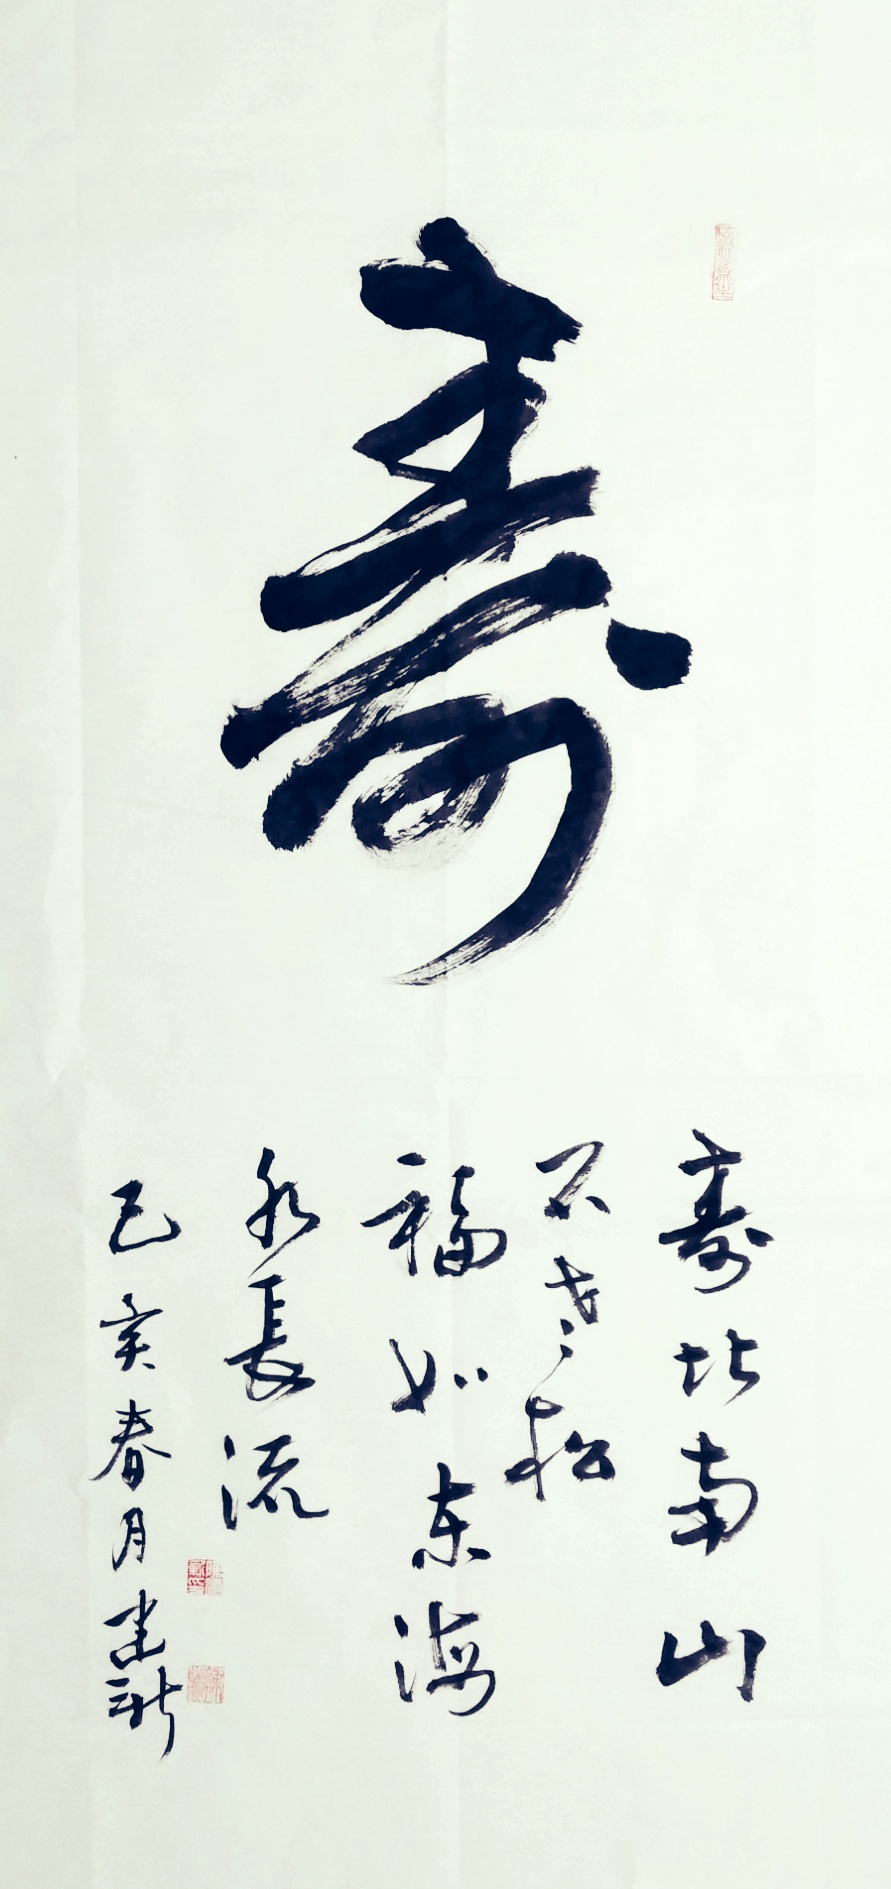 寿
寿比南山
不老松
福如东海
水長流
己亥春月建新